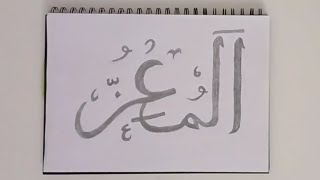 اَلْمُعِزُّ